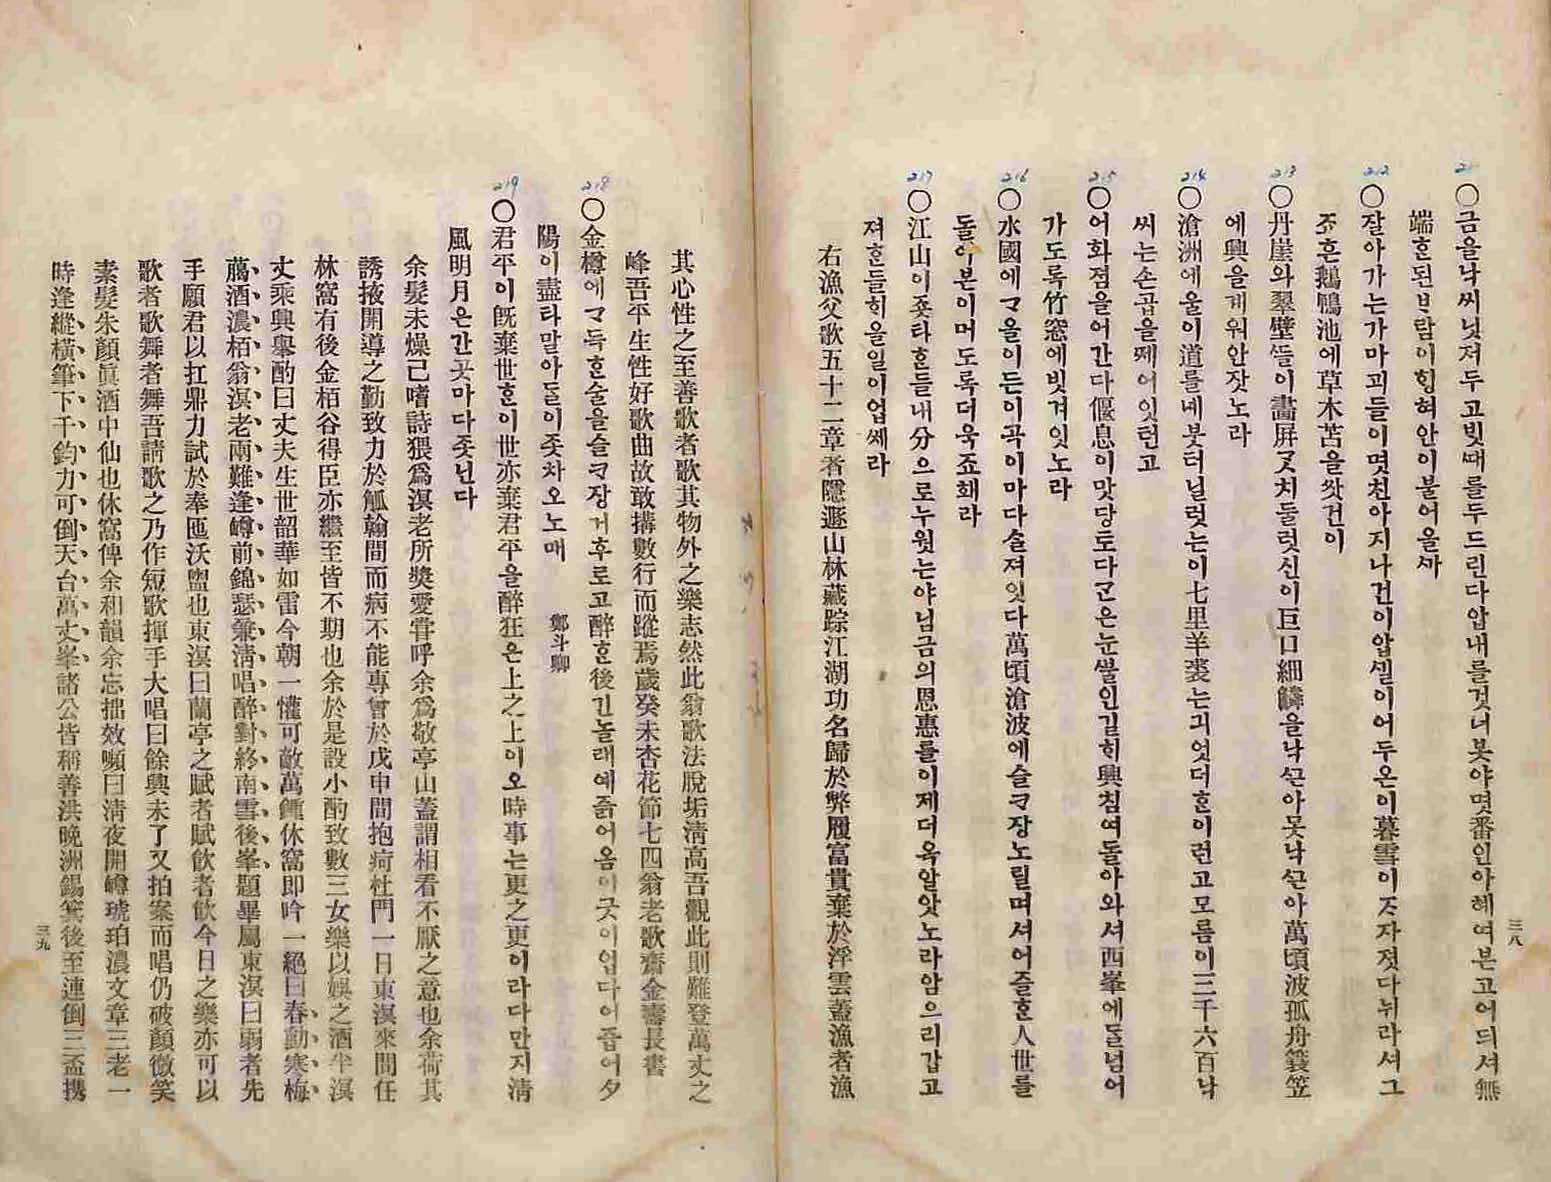 211
○금을낙씨닛져두고빗ᄯᅢ를두드린다압내를것너봇야몃番인아혜여본고어듸셔無
端ᄒᆞᆫ된ᄇᆞ람이힝혀안이불어올ᄭᅡ
212
○잘아가는가마괴들이몃친아지나건이압셸이어두온이暮雪이ᄌᆞ자졋다뉘라셔그
죠흔鵝鴨池에草木苫을쌋건이
213
○丹崖와翠壁들이畵屛ᄀᆞᆺ치둘럿신이巨口細鱗을낙ᄭᅳᆫ아못낙ᄭᅳᆫ아萬頃波孤舟簑笠
에興을계워안잣노라
214
○滄洲에올이道를녜붓터닐럿는이七里羊裘는긔엇더ᄒᆞᆫ이런고모름이三千六百낙
씨는손곱을제어잇던고
215
○어화점을어간다偃息이맛당토다ᄀᆞᄂᆞᆫ눈쌜인길히興침여돌아와셔西峯에ᄃᆞᆯ넘어
가도록竹窓에빗겨잇노라
216
○水國에ᄀᆞ을이든이곡이마다솔져잇다萬頃滄波에슬ᄏᆞ장노릴며셔어즐ᄒᆞᆫ人世를
돌아본이머도록더욱죠홰라
217
○江山이죳타ᄒᆞᆫ들내分으로누웟는야님금의恩惠를이제더욱알앗노라암으리갑고
져ᄒᆞᆫ들히올일이업쎄라
右漁父歌五十二章者隱遯山林藏踪江湖功名歸於弊履富貴棄於浮雲蓋漁者漁
三八
其心性之至善歌者歌其物外之樂志然此翁歌法脫垢淸高吾觀此則難登萬丈之
峰吾平生性好歌曲故敢搆數行而蹤焉歲癸未杏花節七四翁老歌齋金壽長書
218
○金樽에ᄀᆞ득ᄒᆞᆫ술을슬ᄏᆞ장거후로고醉ᄒᆞᆫ後긴놀래예즑어옴이긋이업다어즙어夕
陽이盡타말아ᄃᆞᆯ이좃차오노매 鄭斗卿
219
○君平이旣棄世ᄒᆞᆫ이世亦棄君平을醉狂은上之上이오時事는更之更이라다만지淸
風明月은간곳마다좃닌다
余髮未燥已嗜詩猥爲溟老所奬愛嘗呼余爲敬亭山蓋謂相看不厭之意也余荷其
誘掖開導之勤致力於觚翰間而病不能專會於戊申間抱痾杜門一日東溟來問任
林窩有後金栢谷得臣亦繼至皆不期也余於是設小酌致數三女樂以娛之酒半溟
丈乘興擧酌曰丈夫生世韶華如雷今朝一懽可敵萬鍾休窩即吟一絶曰春動寒梅
臈酒濃栢翁溟老兩難逢嶟前錦瑟兼淸唱醉對終南雪後峯題畢屬東溟曰弱者先
手願君以扛鼎力試於奉匜沃盥也東溟曰蘭亭之賦者賦飮者飮今日之樂亦可以
歌者歌舞者舞吾請歌之乃作短歌揮手大唱曰餘興未了又拍案而唱仍破顏微笑
素髮朱顏眞酒中仙也休窩俾余和韻余忘拙效嚬曰淸夜開嶟琥珀濃文章三老一
時逢縱橫筆下千鈞力可倒天台萬丈峯諸公皆稱善洪晩洲錫箕後至連倒三盃携
三九